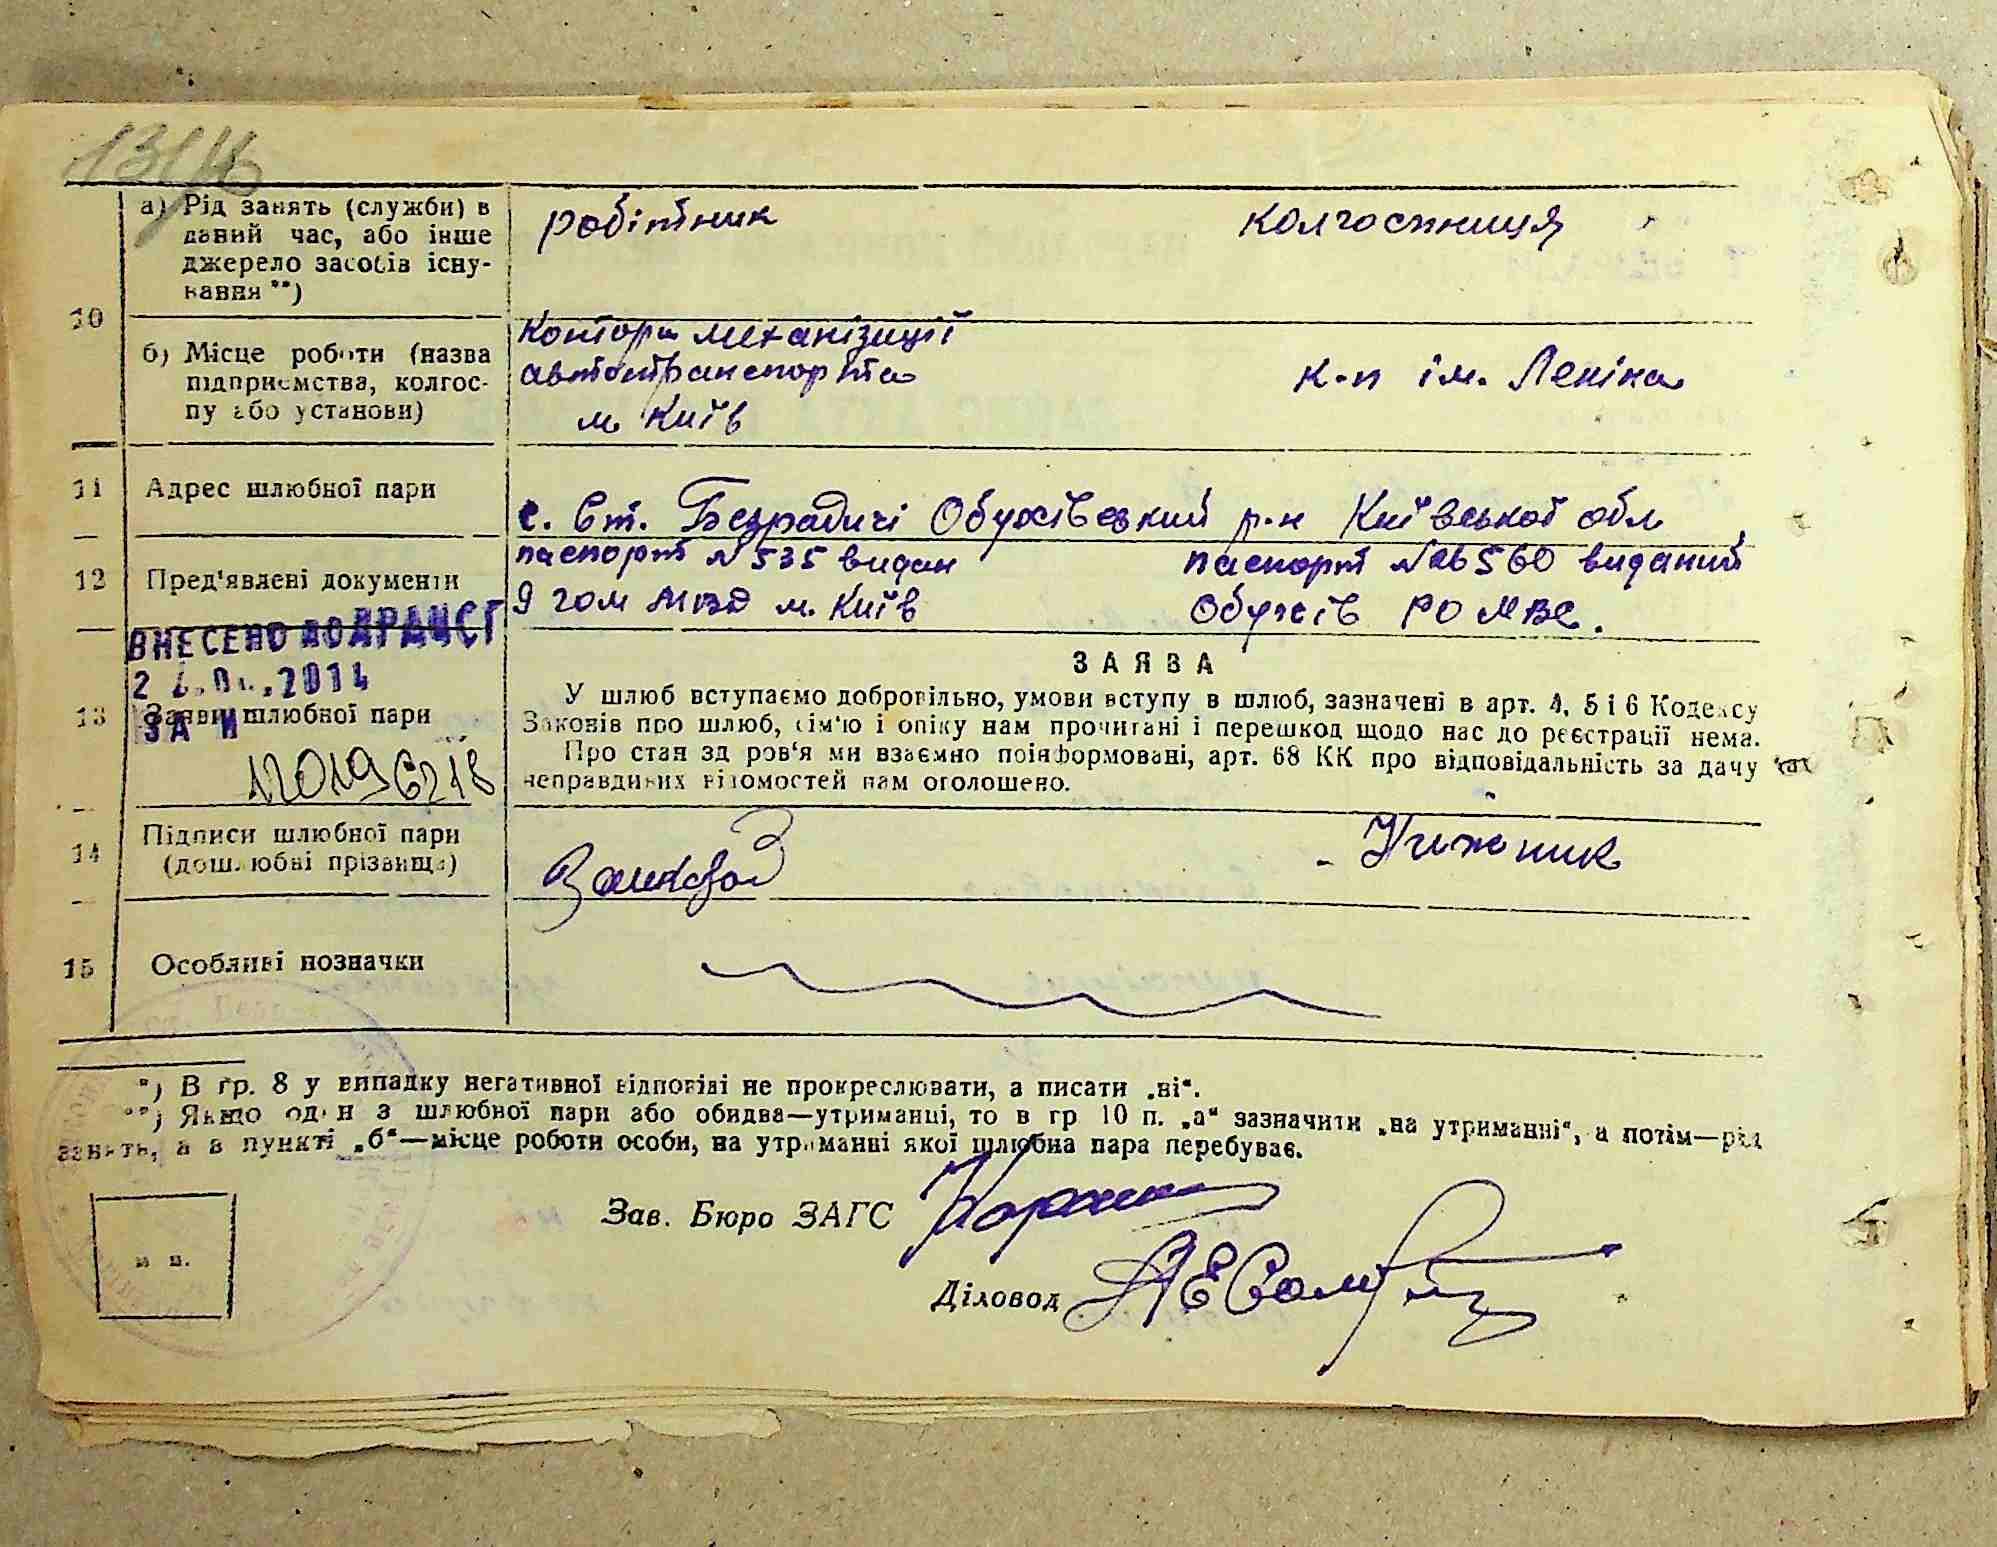 а) Рід занять (служби) в
даний час, або інше
джерело засобів існу-
вання **)
робітник
колгоспниця
10
б) Місце роботи (назва
підприємства, колгос-
пу або установи)
Контора механізації
автотранспорта
м Київ
к-п ім. Леніна
11 Адрес шлюбної пари
с. Ст. Безрадичі Обухівський р-н Київської обл
12 Пред'явлені документи
паспорт № 535 видан
9 гом МВД м. Київ
паспорт № 26560 виданий
Обухів РО МВС.
ВНЕСЕНО ДО ДРАЦСГ
2014
ЗА №
120196218
13 Заяви шлюбної пари
ЗАЯВА
У шлюб вступаємо добровільно, умови вступу в шлюб, зазначені в арт. 4, 5 і 6 Кодексу
Законів про шлюб, сім'ю і опіку нам прочитані і перешкод щодо нас до реєстрації нема.
Про стан здоров'я ми взаємно поінформовані, арт. 68 КК про відповідальність за дачу
неправдивих відомостей нам оголошено.
14 Підписи шлюбної пари
(дошлюбні прізвища)
15 Особливі позначки
*) В гр. 8 у випадку негативної відповіді не прокреслювати, а писати „ні“.
**) Якщо один з шлюбної пари або обидва—утриманці, то в гр 10 п. „а“ зазначити „на утриманні“, а потім—рід
занять, а в пункті „б“—місце роботи особи, на утриманні якої шлюбна пара перебуває.
Зав. Бюро ЗАГС
Діловод
м п.